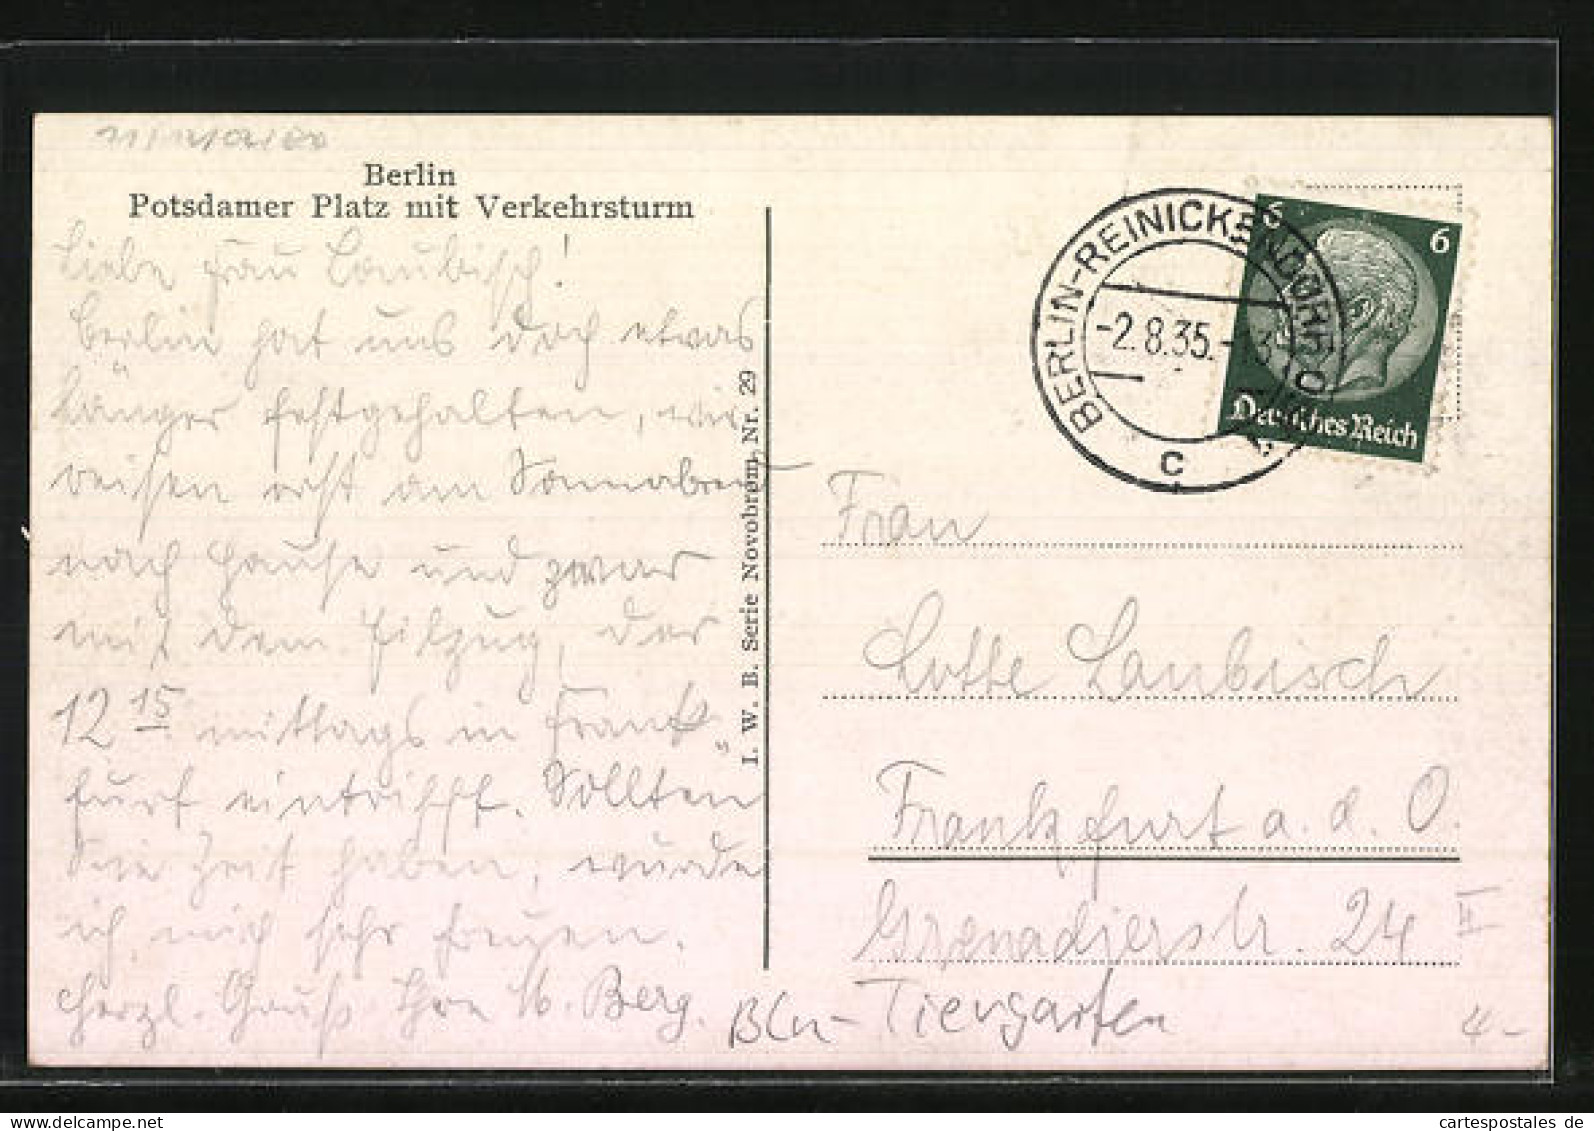 Berlin
Potsdamer Platz mit Verkehrsturm
Liebe Frau Laubisch!
Berlin hat uns doch etwas
länger festgehalten, wir
reisen erst am Sonnabend
nach Hause und zwar
mit dem Eilzug, der
12 15 mittags in Frank„
furt eintrifft. Sollten
Sie Zeit haben, würde
ich mich sehr freuen.
Herzl. Gruß Ihre Berg.
I. W. B. Serie Novobrom, Nr. 29
BERLIN-REINICKENDORF
-2.8.35.-
c
6
6
Deutsches Reich
Frau
Lotte Laubisch
Frankfurt a. d. O.
Grenadierstr. 24 II
Bln - Tiergarten
4.-
cartespostales de